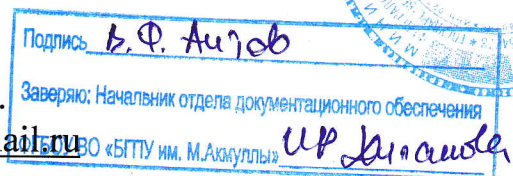 Подпись В. Ф. Аитов
Заверяю: Начальник отдела документационного обеспечения
ail.ru ФГБОУ ВО «БГПУ им. М.Акмуллы»